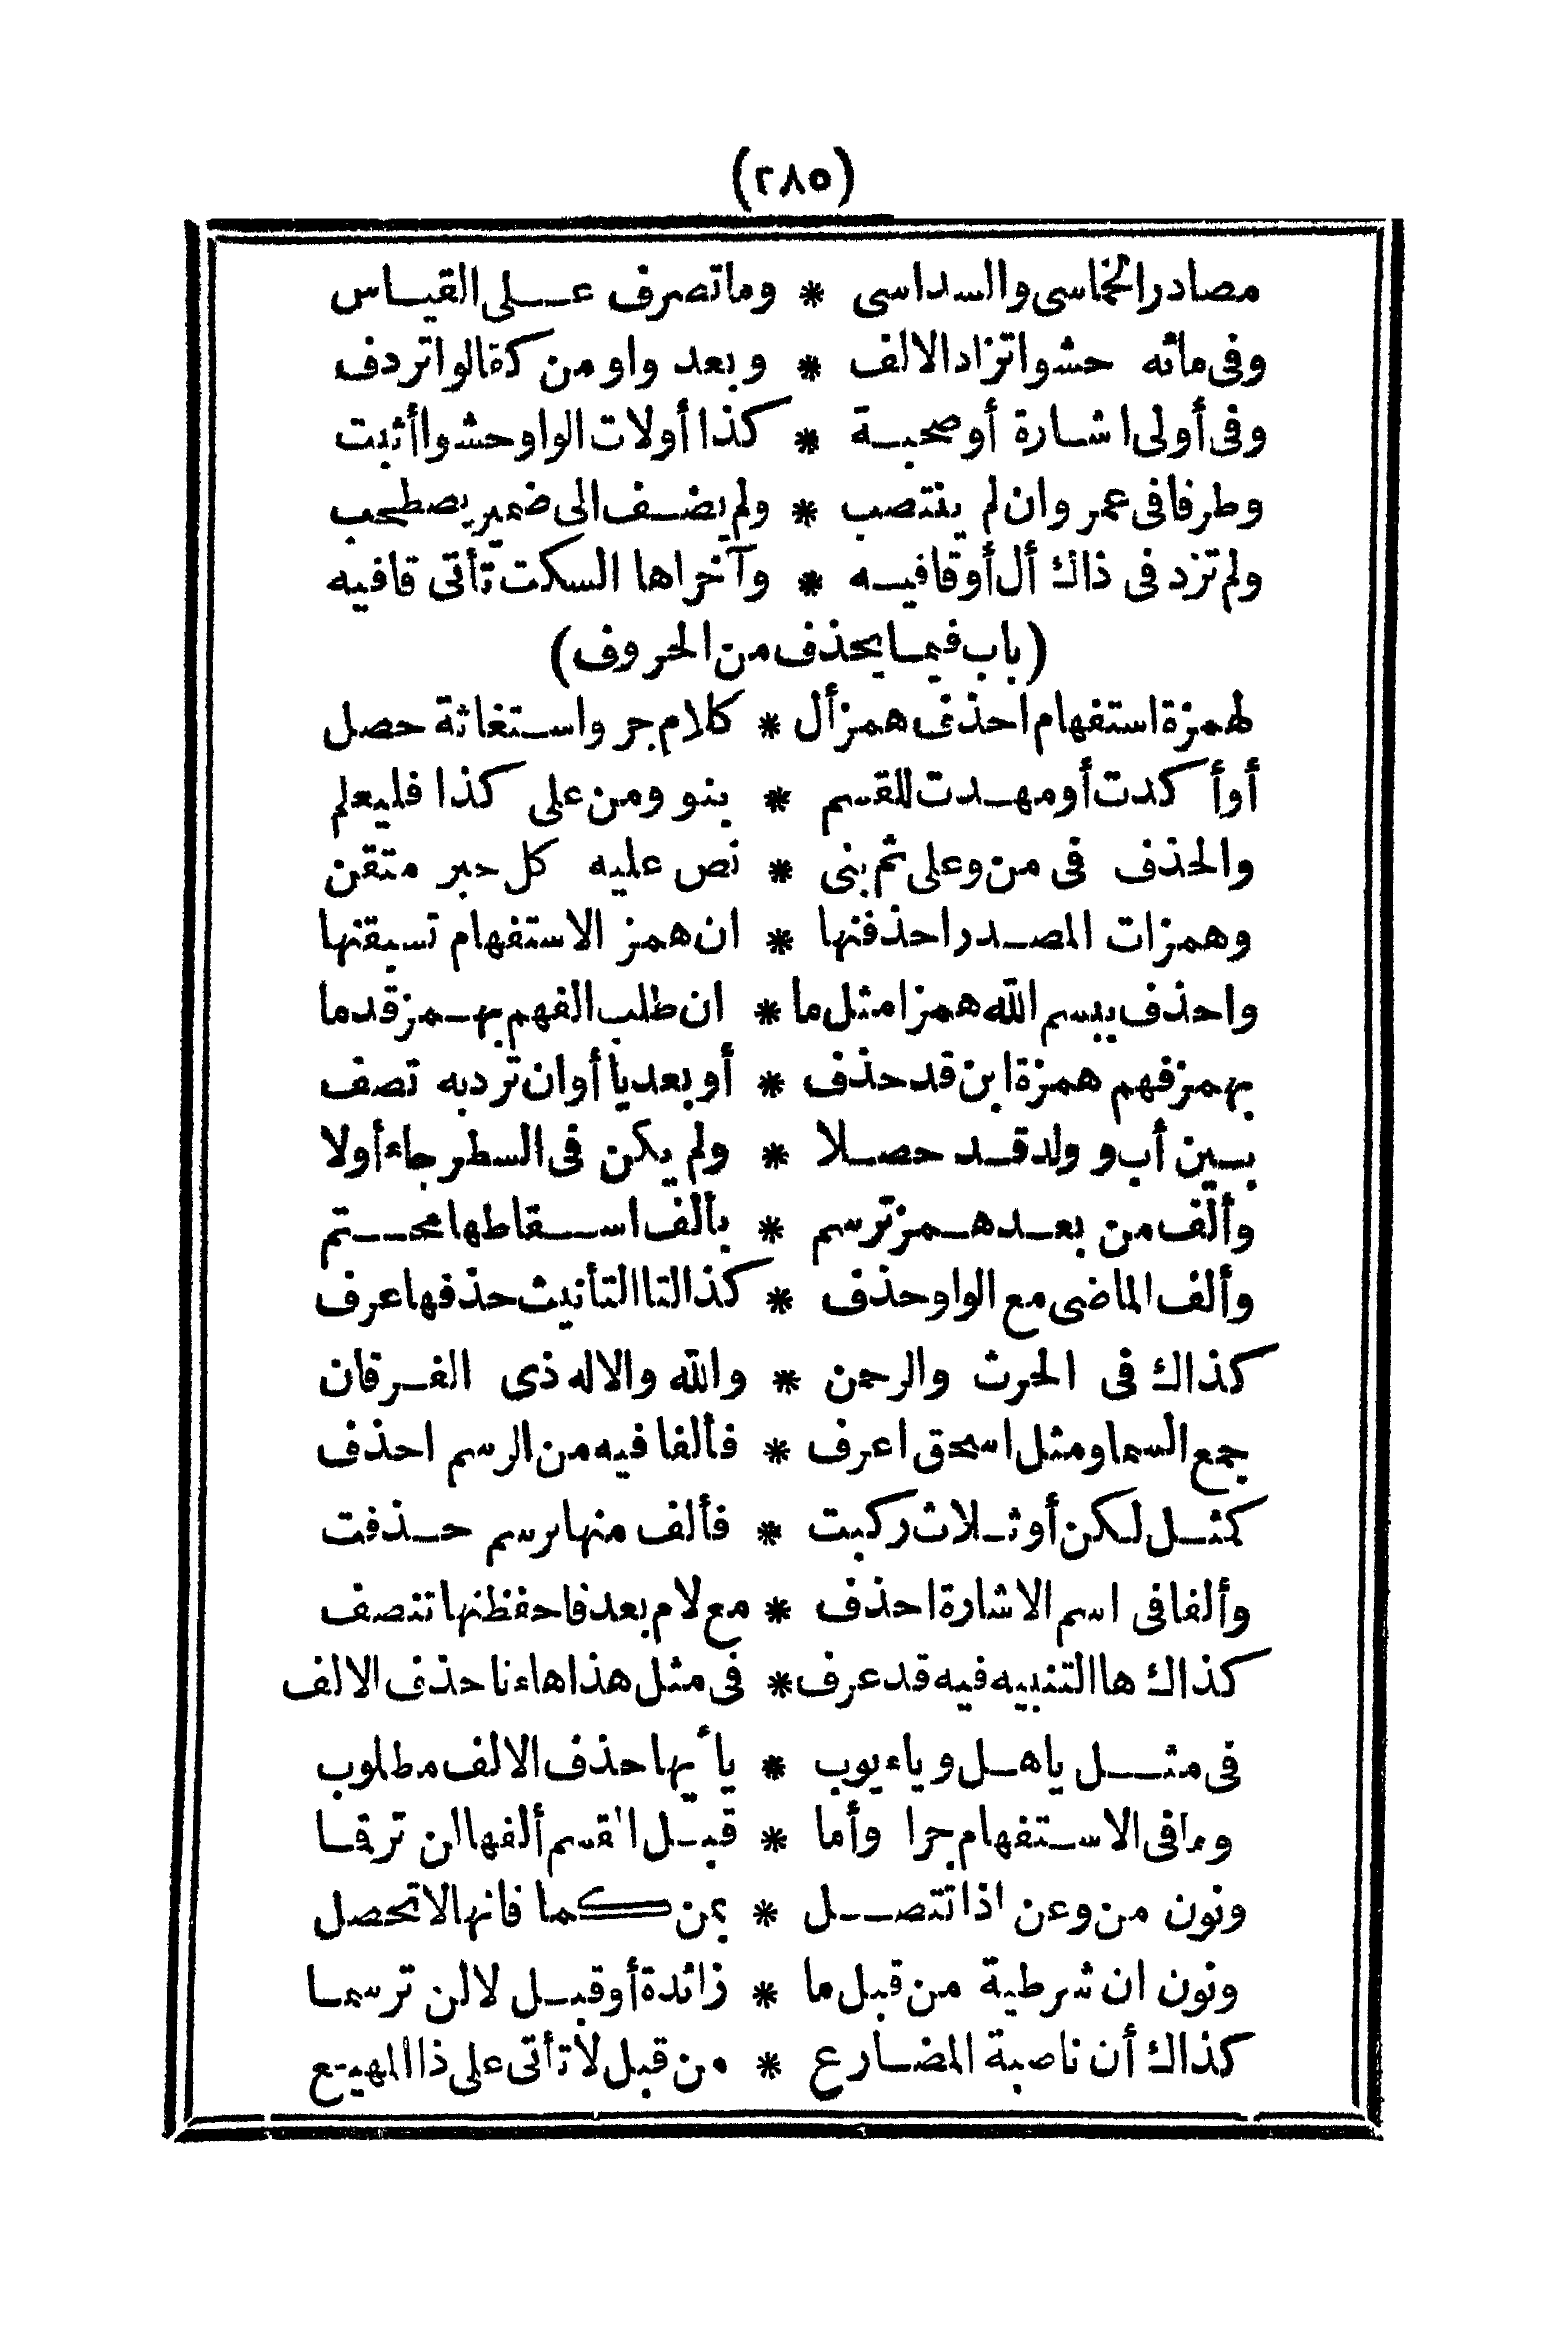 (٢٨٥)
مصادر الخماسى والسداسى * وما تصرف على القياس
وفى مائه حشوا تزاد الالف * وبعد واو من كقالوا تردف
وفى أولى اشارة أو صحبة * كذا أولات الواو حشوا أثبت
وطرفا فى عمر وان لم ينتصب * ولم يضف الى ضمير يصطحب
ولم تزد فى ذاك أل أو قافيه * وآخراها السكت تأتى قافيه
(باب فيما يحذف من الحروف)
لهمزة استفهام احذفى همز أل * كلام جر واستغاثة حصل
أو أكدت أو مهدت للقسم * بنو ومن على كذا فليعلم
والحذف فى من وعلى ثم بنى * نص عليه كل حبر متقن
وهمزات المصدر احذفنها * ان همز الاستفهام تسبقنها
واحذف ببسم الله همزا مثل ما * ان طلب الفهم بهمز قدما
بهمز فهم همزة ابن قد حذف * أو بعد يا أو ان ترد به تصف
بين أب و ولد قد حصلا * ولم يكن فى السطر جاء أولا
وألف من بعد همز ترسم * بألف اسقاطها محتم
وألف الماضى مع الواو حذف * كذا لتا التأنيث حذفها عرف
كذاك فى الحرث والرحمن * والله والاله ذى الفرقان
جمع السما ومثل اسحق اعرف * فألفا فيه من الرسم احذف
كمثل لكن أو ثلاث ركبت * فألف منها برسم حذفت
وألفا فى اسم الاشارة احذف * مع لام بعد فاحفظنها تنصف
كذاك ها التنبيه فيه قد عرف * فى مثل هذا هاء نا حذف الالف
فى مثل ياهل وياء يوب * يا أيها حذف الالف مطلوب
وما فى الاستفهام جرا وأما * قبل القسم ألفها لن ترقما
ونون من وعن اذا تتصل * بمن كما فانها لا تحصل
ونون ان شرطية من قبل ما * زائدة أو قبل لا لن ترسما
كذاك أن ناصبة المضارع * من قبل لا تأتى على ذا المهيع